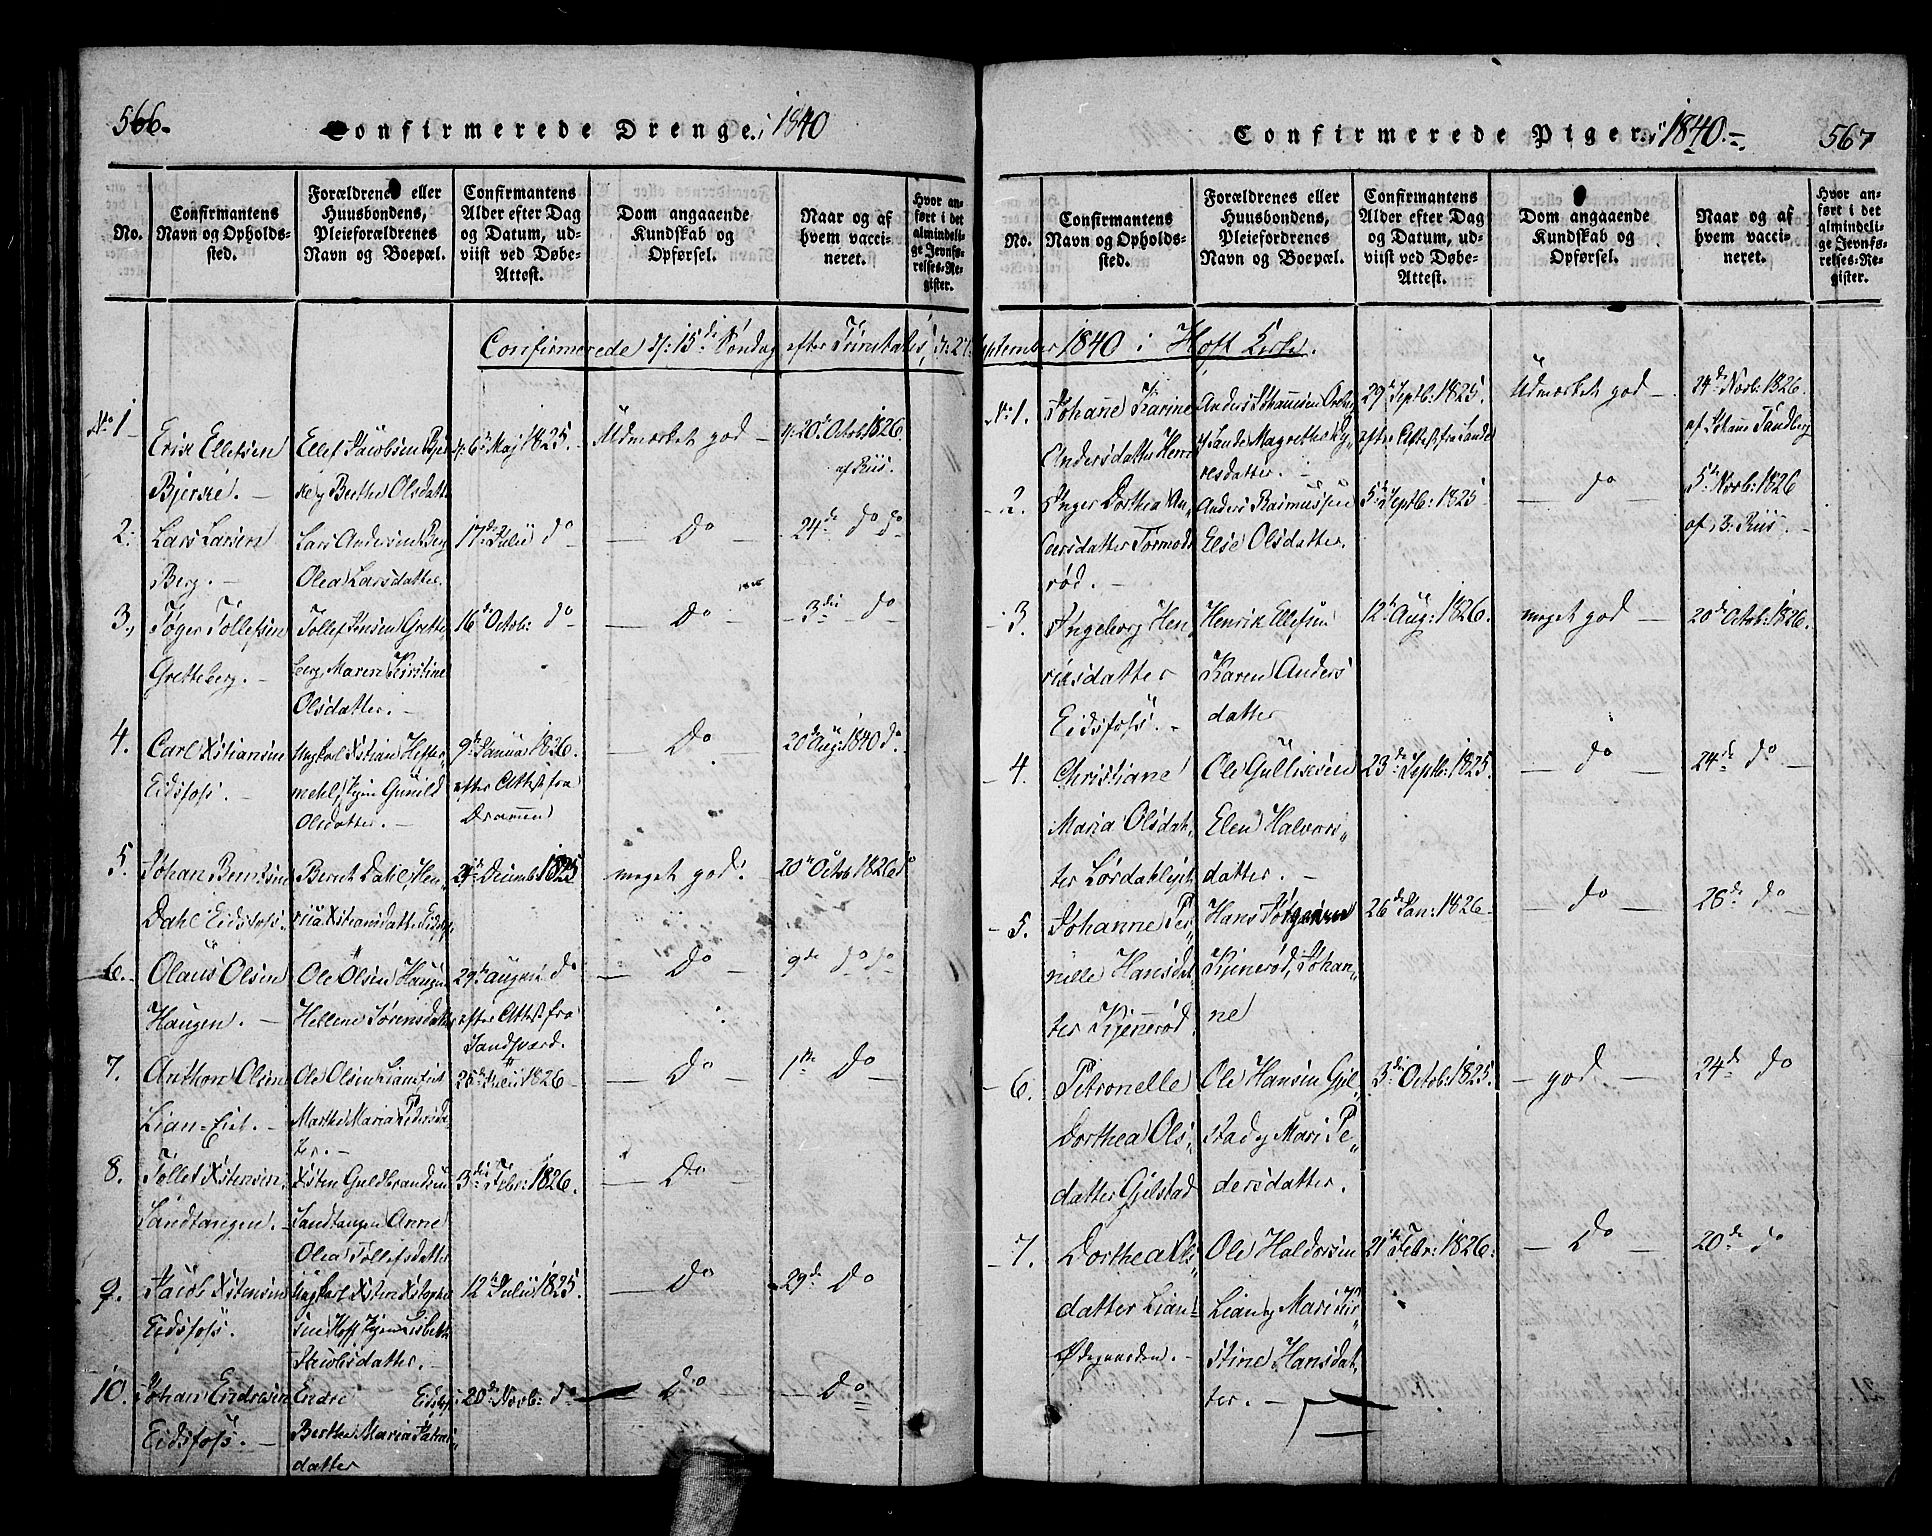 566.
Confirmerede Drenge i 1840
No.
Confirmantens
Navn og Opholds-
sted.
Forældrenes eller
Huusbondens,
Pleieforældrenes
Navn og Boepæl.
Confirmantens
Alder efter Dag
og Datum, ud-
viist ved Døbe-
Attest.
Dom angaaende
Kundskab og
Opførsel.
Naar og af
hvem vacci-
neret.
Hvor an-
ført i det
almindeli-
ge Jevnfø-
relses-Re-
gister.
Confirmerede d: 15de Søndag efter Trinitatis, d: 27
No 1
Erik Ellefsen
Bjerke. –
Ellef Jacobsen Bjer
ke og Berthe Olsdatter
d: 6te Maj 1825. –
Udmærket god –
d: 20de Octob: 1826.
af Riis.
2:
Lars Larsen
Berg. –
Lars Andersen Berg
Olea Larsdatter.
17de Julii do
– Do –
24de do do
3,
Tøger Tollefsen
Gretteberg. –
Tollef Jensen Grette
berg, Maren Kirstine
Olsdatter. –
16de Octob: do
– Do –
– 3die do
4.
Carl Xstiansen
Eidsfoss. –
Ungkarl Xstian
Pigen Gunild
Olsdatter. –
9de Januar 1826.
efter Attest fra
Drammen
– Do –
20de Aug: 1840 do.
5.
Johan Berntsen
Dahl Eidsfoss.
Bernt Dahl, Hen
Xstiansdatter Eidsfoss
Decemb: 1825
meget god. –
20de Octob 1826 do
6. –
Olaus Olsen
Haugen. –
Ole Olsen Haugen
Hellene Sørensdatter
29de August do
efter Attest fra
Sandsværd.
– Do –
9de do do
7.
Anthon Olsen
Lian-Eiet. –
Ole Olsen Lianeiet
Marthe Maria Pedersdat
ter. –
Julii 1826 –
– Do –
1ste Do
8.
Tollef Xstensen
Sandtangen. –
Xsten Guldbrandsen
Sandtangen Anne
Olea Tollefsdatter
3die Febr: 1826.
– Do
9.
Jacob Xstensen
Eidsfoss.
Ungkarl Xsten Xstophe
sen Hoff, Pigen Lisbeth
Jacobsdatter. –
12te Julii 1825.
– Do –
29de Do
10.
Johan Endresen
Eidsfoss. –
Endre Eidsfoss
Berthe Maria
datter
20de Novb: do
– Do –
– Do –
Confirmerede Piger i 1840. –
567
No.
Confirmantens
Navn og Opholds-
sted.
Forældrenes eller
Huusbondens,
Pleiefordrenes
Navn og Boepæl.
Confirmantens
Alder efter Dag
og Datum, ud-
viist ved Døbe-
Attest.
Dom angaaende
Kundskab og
Opførsel.
Naar og af
hvem vacci-
neret.
Hvor an-
ført i det
almindeli-
ge Jevnfø-
relses-Re-
gister.
September 1840 i Hoff Kirke.
No: 1.
Johane Karine
Andersdatter
Anders Johannesen
Sande Magrethe
datter. –
29de Septb: 1825.
efter Attest fra Sande
Udmærket god –
24de Novb: 1826
af Johane Sandberg
– 2.
Inger Dorthea An„
dersdatter Tormods
rød. –
Anders Rasmussen
Else Olsdatter.
5te Septb: 1825
– do –
5te Novb: 1826
af B. Riis. –
– 3.
Ingeborg Hen„
riksdatter
Eidsfoss. –
Henrik Ellefsen
Karen Anders
datter
12te Aug: 1826.
meget god –
20de Octob: 1826.
– 4.
Christiane
Maria Olsdat„
ter
Ole Gulliksen
Elen Halvors„
datter. –
23de Septb: 1825.
– do –
24de do
– 5.
Johanne Per„
nille Hansdat„
ter Kjennerød
Hans
Kjenerød, Johan„
ne
26de Jan: 1826 –
– do –
28de do
– 6.
Petronelle
Dorthea Ols„
datter Gjelstad
Ole Hansen Gjel„
stad og Mari Pe„
dersdatter.
3die Octob: 1825.
– god –
24de do
– 7.
Dorthea Ols„
datter Lian„
Ødegaarden. –
Ole Haldorsen
Lian og Mari Kir„
stine Hansdat„
ter. –
21de Febr: 1826:
– Do –
20de do